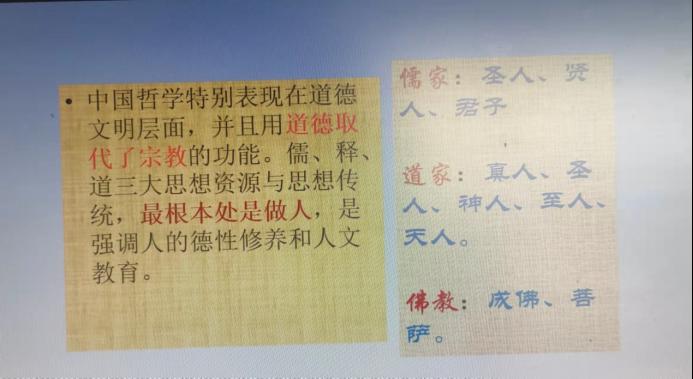 • 中国哲学特别表现在道德
文明层面，并且用道德取
代了宗教的功能。儒、释、
道三大思想资源与思想传
统，最根本处是做人，是
强调人的德性修养和人文
教育。
儒家：圣人、贤
人、君子
道家：真人、圣
人、神人、至人、
天人。
佛教：成佛、菩
萨。